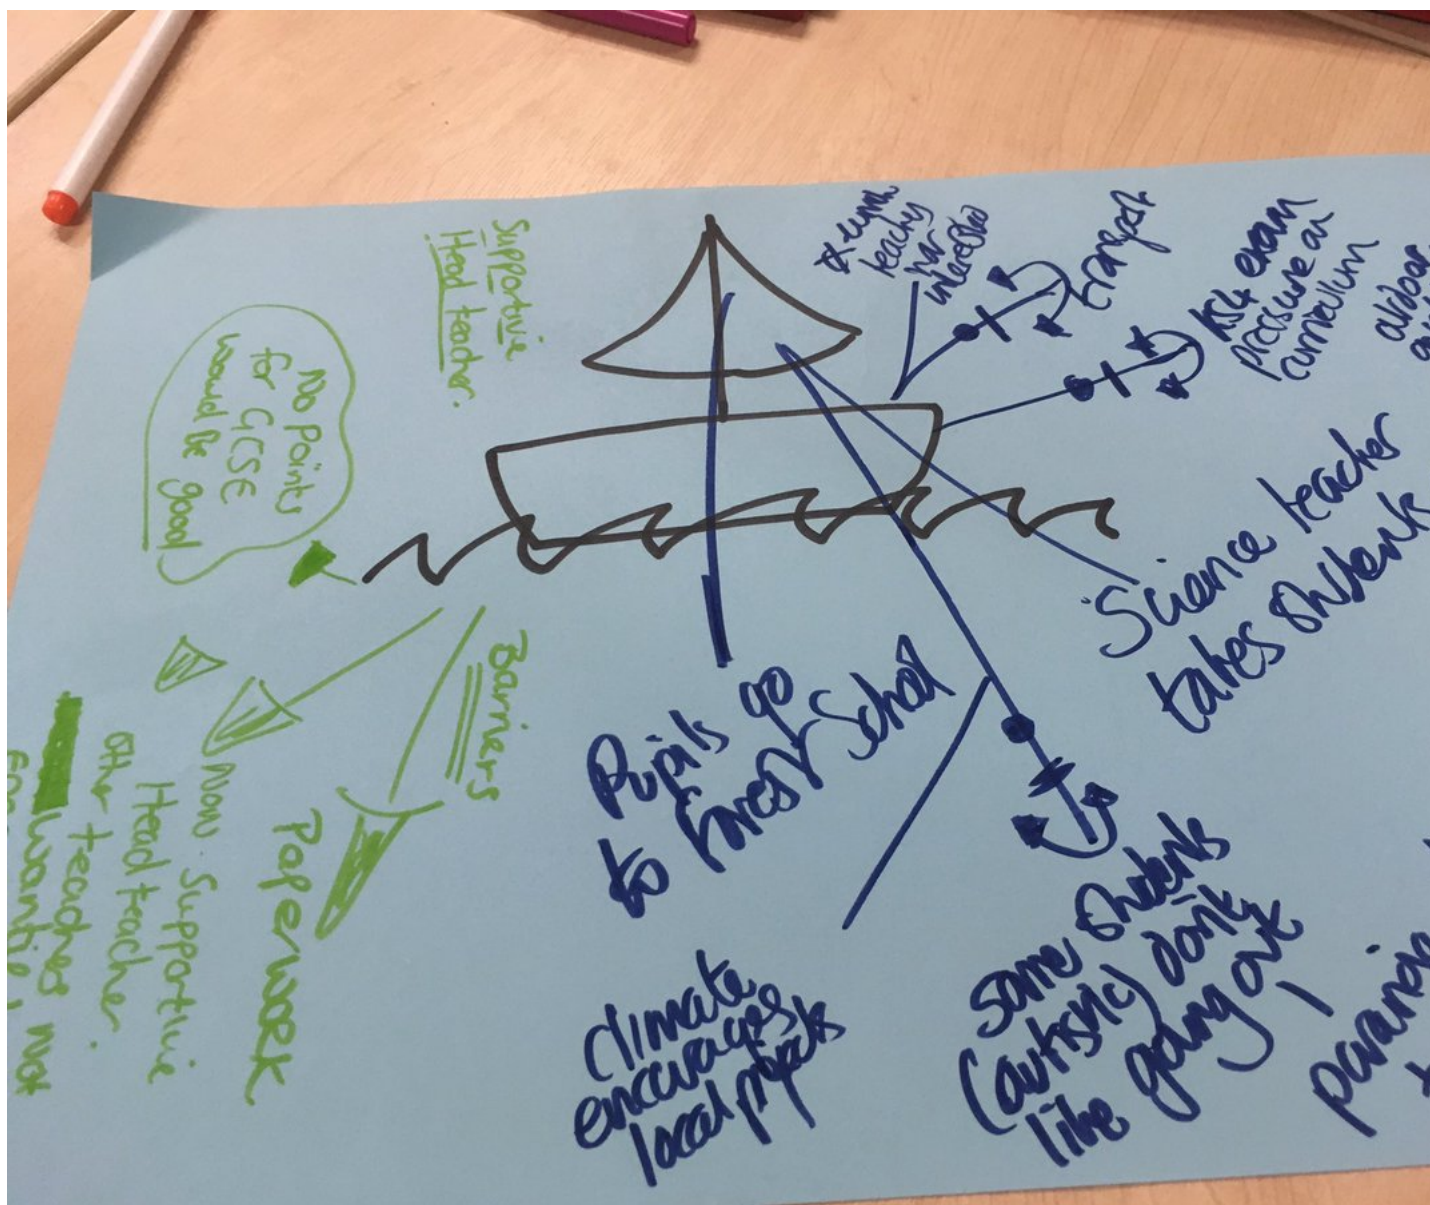 Supportive
Head teacher.
No points
for GCSE
would be good
Barriers
Paperwork
Non-Supportive
Head teacher.
other teachers
wanting, not
teachers
not
interested
transport
KS4 exam
pressure on
curriculum
Science teacher
takes students
Pupils go
to Forest School
climate
encourages
local projects
some students
(autistic) don't
like going out